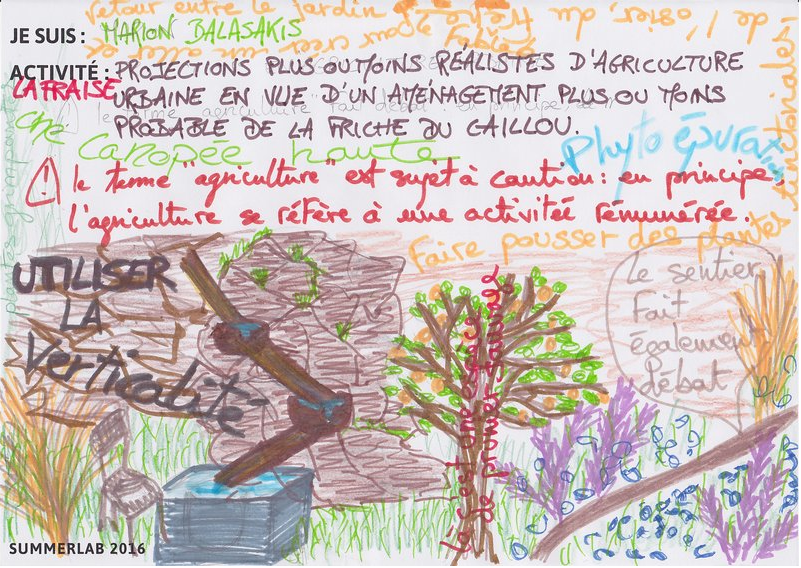 retour entre le jardin
JE SUIS : MARION BALASAKIS
ACTIVITÉ : PROJECTIONS PLUS OU MOINS RÉALISTES D'AGRICULTURE
LA FRAISE
URBAINE EN VUE D'UN AMÉNAGEMENT PLUS OU MOINS
PROBABLE DE LA FRICHE DU CAILLOU.
Canopée haute
Phyto épuration
le terme "agriculture" est sujet à caution : en principe,
l'agriculture se réfère à une activité rémunérée.
Faire pousser des plantes tinctoriales
plantes grimpantes
UTILISER
LA
Verticalité
Le sentier
Fait
également
débat
là c'est une espèce
de prunier jaunes
SUMMERLAB 2016